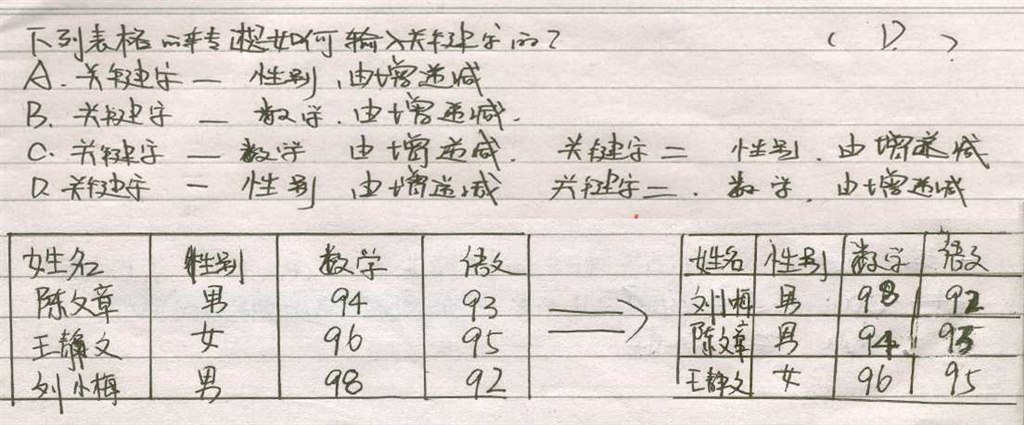 下列表格的转换如何输入关键字的? ( D. )
A. 关键字 一 性别 , 由增递减
B. 关键字 一 数学 . 由增递减.
C. 关键字 一 数学 由增递减. 关键字二 性别 . 由增递减
D. 关键字 一 性别 由增递减 关键字二. 数学 . 由增递减
姓名 性别 数学 语文 姓名 性别 数学 语文
陈文章 男 94 93 刘小梅 男 98 92
王静文 女 96 95 陈文章 男 94 93
刘小梅 男 98 92 王静文 女 96 95